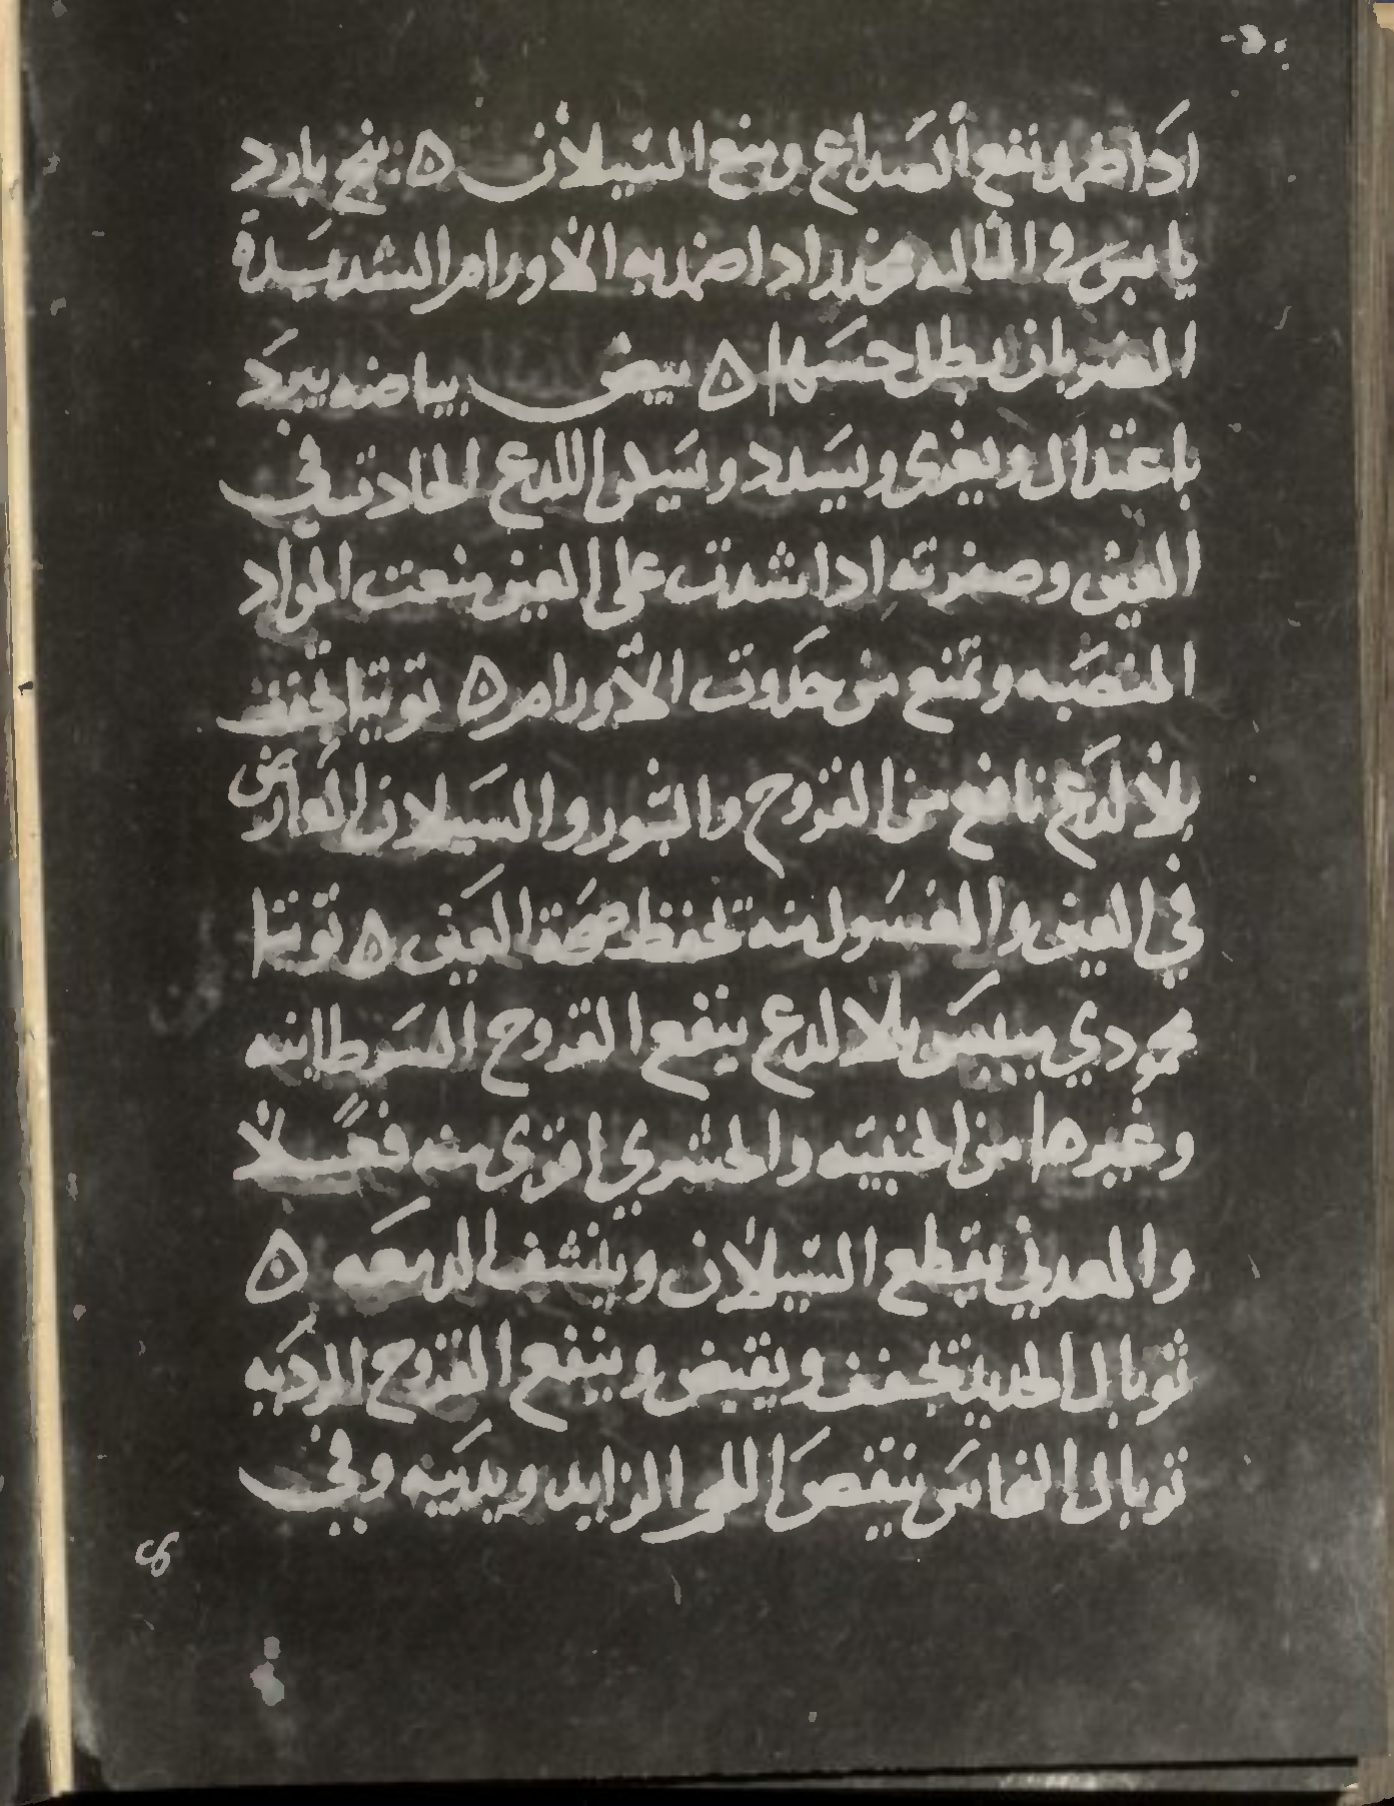 اذا ضمد نفع الصداع ومنع السيلان ۵ بنج بارد
يابس في الثالثه مخدر اذا ضمد به الاورام الشديدة
الضربان بطل حسها ۵ بيض بياضه يبرد
باعتدال ويغرى ويسدد ويسكن اللدع الحادث في
العين وصفرته اذا شدت على العين منعت المواد
المنصبه وتمنع من حدوث الاورام ۵ توتيا تجفف
بلا لدع نافع من القروح والبثور والسيلان العارض
في العين والمغسول منه تحفظ صحة العين ۵ توتيا
محمودي ييبس بلا لدع ينفع القروح السرطانيه
وغيرها من الخبيثه والحشري اقوى منه فعلا
والمعدني يقطع السيلان وينشف الدمعه ۵
توبال الحديد تجفف ويقبض وينفع القروح الرديه
توبال النحاس ينقص اللحم الزايد ويذيبه وفي